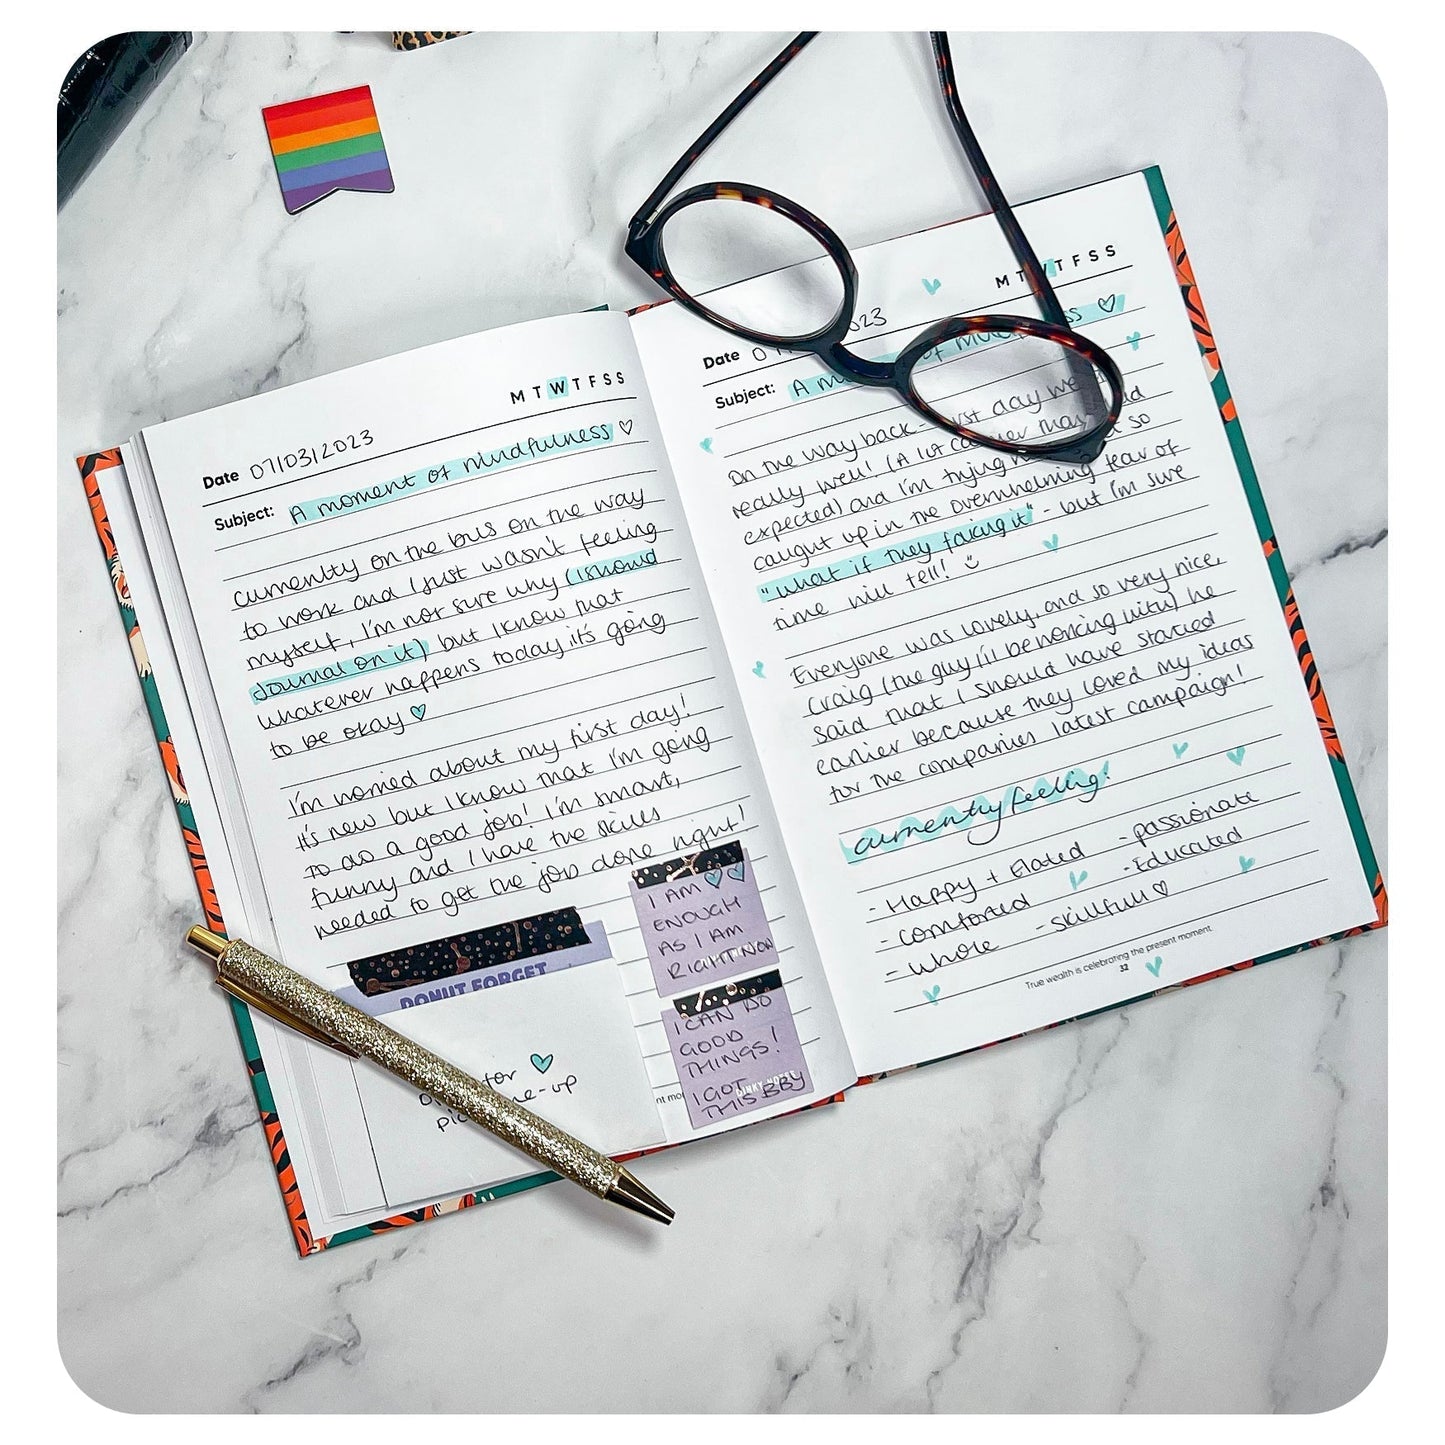 M T W T F S S
Date 07/03/2023
Subject: A moment of mindfulness
currenlty on the bus on the way
to work and I just wasn't feeling
myself, I'm not sure why (I should
Journal on it) but I know that
whatever happens today it's going
to be okay
I'm worried about my first day!
It's new but I know that I'm going
to do a good job! I'm smart,
funny and I have the skills
needed to get the job done right!
DONUT FORGET
for
me-up
I AM
ENOUGH
AS I AM
RIGHT NOW
I CAN DO
GOOD
THINGS!
I GOT
THIS BBY
M T W T F S S
Date 023
Subject: A of
On the way back - first day we
really well! (A lot
expected) and I'm trying so
caught up in the overwhelming fear of
"what if they faking it" - but I'm sure
time will tell!
Everyone was lovely, and so very nice,
Craig (the guy I'll be working with) he
said that I should have started
earlier because they loved my ideas
for the companies latest campaign!
currently feeling:
- Happy + Elated - passionate
- comforted - Educated
- whole - skillfull
True wealth is celebrating the present moment.
32